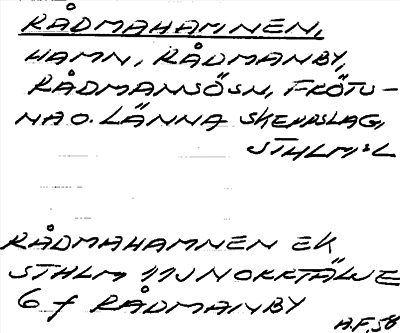 RÅDMAHAMNEN,
HAMN, RÅDMANBY,
RÅDMANSÖSN, FRÖTU-
NA O. LÄNNA SKEPPSLAG,
STHLM:s L
RÅDMAHAMNEN EK
STHLM 11J NORRTÄLJE
6 f RÅDMANBY
A.F. 58